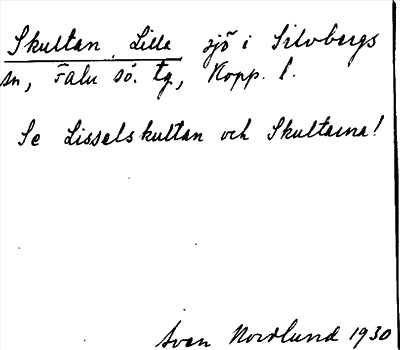 Skultan, Lilla sjö i Silvbergs
sn, Falu sö. tg, Kopp. l.
Se Lisselskultan och Skultarna!
Sven Nordlund 1930